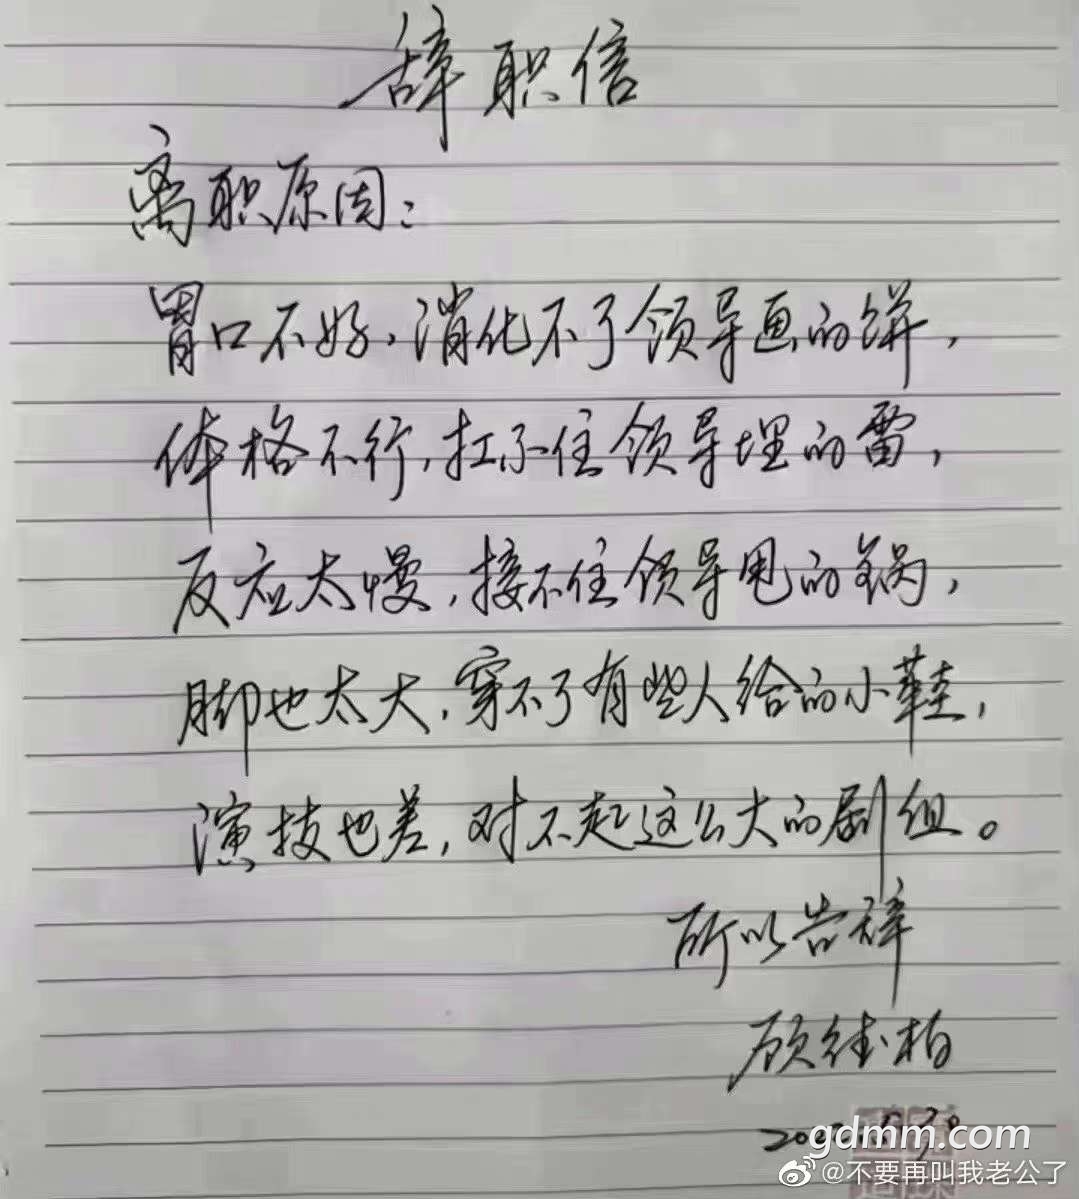 辞职信
离职原因:
胃口不好,消化不了领导画的饼,
体格不行,扛不住领导埋的雷,
反应太慢,接不住领导甩的锅,
脚也太大,穿不了有些人给的小鞋,
演技也差,对不起这么大的剧组。
所以告辞
顾
柏
gdmm.com
@不要再叫我老公了